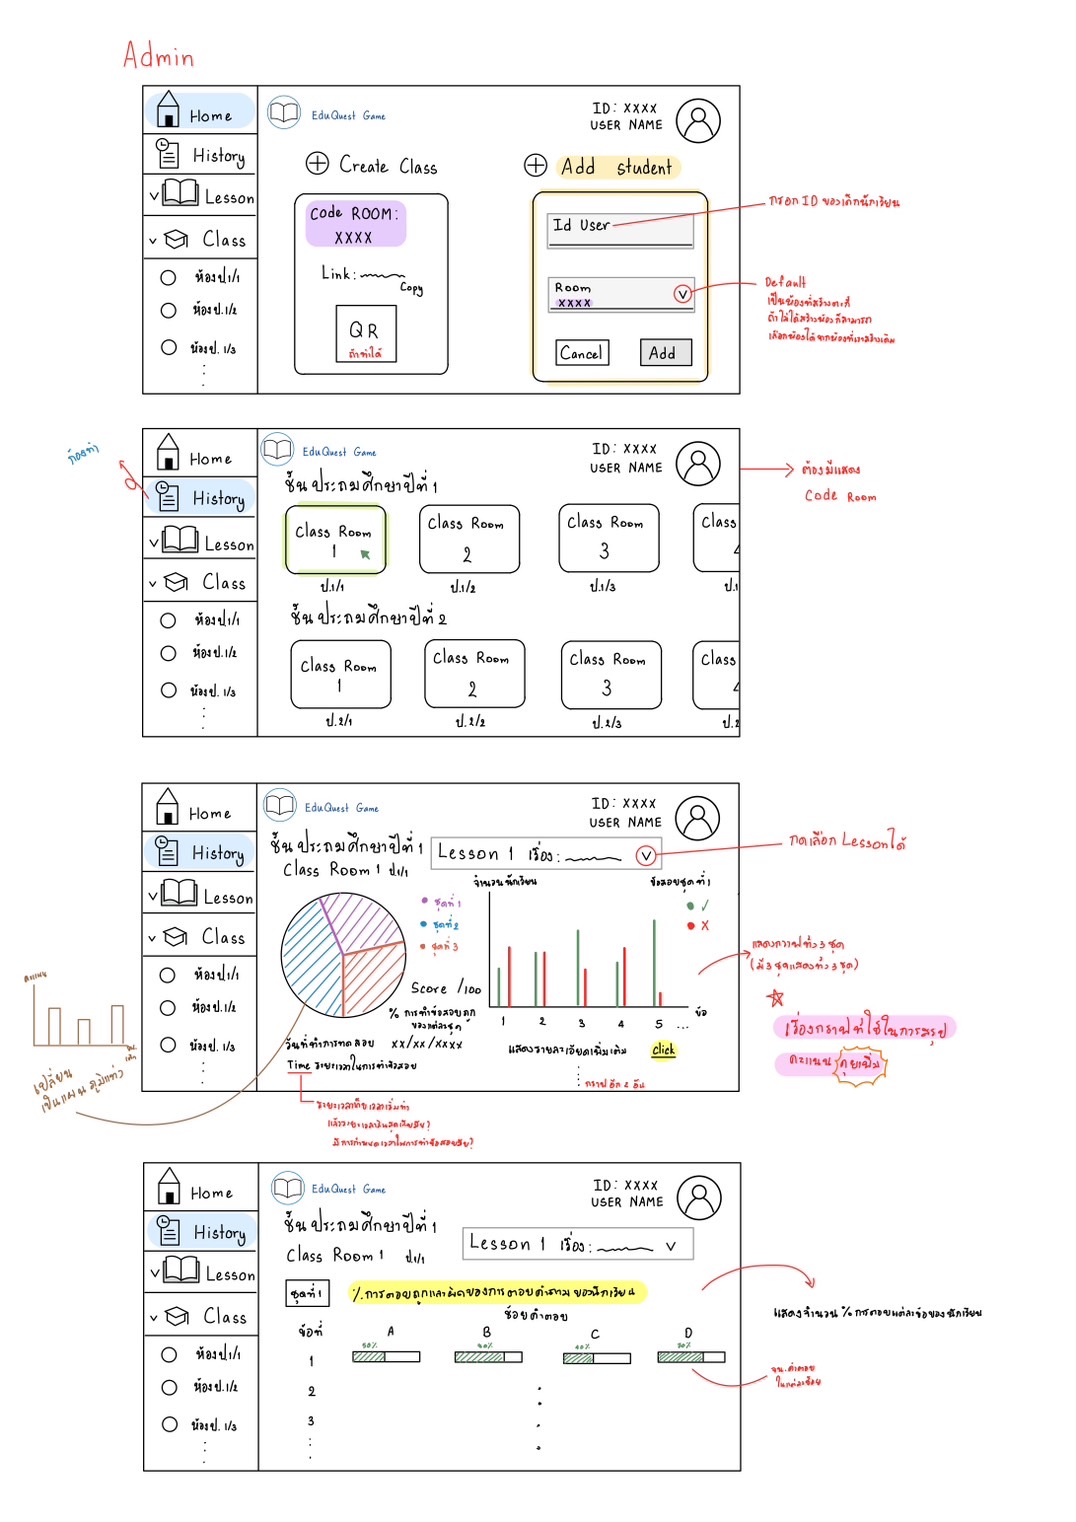 Admin
Home
History
Lesson
Class
ห้องป.1/1
ห้องป.1/2
ห้องป. 1/3
EduQuest Game
ID: XXXX
USER NAME
Create Class
Add student
Code ROOM:
XXXX
Link:
Copy
QR
ถ้าทำได้
Id User
Room
XXXX
Cancel
Add
กรอก ID ของเด็กนักเรียน
Default
เป็นห้องที่สร้างตะกี้
ถ้าไม่ได้สร้างห้องก็สามารถ
เลือกห้องได้จากห้องที่เราสร้างเดิม
Home
History
Lesson
Class
ห้องป.1/1
ห้องป.1/2
ห้องป. 1/3
EduQuest Game
ID: XXXX
USER NAME
ชั้นประถมศึกษาปีที่ 1
Class Room
1
Class Room
2
Class Room
3
Class
ป.1/1
ป.1/2
ป.1/3
ป.1
ชั้นประถมศึกษาปีที่ 2
Class Room
1
Class Room
2
Class Room
3
Class
ป.2/1
ป.2/2
ป.2/3
ป.2
ต้องมีแสดง
Code Room
Home
History
Lesson
Class
ห้องป.1/1
ห้องป.1/2
ห้องป. 1/3
EduQuest Game
ID: XXXX
USER NAME
ชั้นประถมศึกษาปีที่ 1
Class Room 1 ป.1/1
Lesson 1 เรื่อง:
กดเลือก Lessonได้
ชุดที่ 1
ชุดที่2
ชุดที่ 3
Score /100
% การทำข้อสอบถูก
ของแต่ละชุด
วันที่ทำการทดสอบ xx/xx/xxxx
Time ระยะเวลาในการทำข้อสอบ
จำนวนนักเรียน
ข้อสอบชุดที่ 1
✓
X
1 2 3 4 5 ... ข้อ
แสดงรายละเอียดเพิ่มเติม click
กราฟ อีก 2 อัน
แสดงกราฟทั้ง 3 ชุด
(มี 3 ชุดแสดงทั้ง 3 ชุด)
เรื่องกราฟที่ใช้ในการสรุป
คะแนน คุยเพิ่ม
คะแนน
เปลี่ยน
เป็นแผนภูมิแท่ง
มีการกำหนดเวลาในการทำข้อสอบมั้ย?
Home
History
Lesson
Class
ห้องป.1/1
ห้องป.1/2
ห้องป. 1/3
EduQuest Game
ID: XXXX
USER NAME
ชั้นประถมศึกษาปีที่ 1
Class Room 1 ป.1/1
Lesson 1 เรื่อง:
ชุดที่ 1
% การตอบถูกและผิดของการตอบคำถาม ของนักเรียน
ช้อยคำตอบ
ข้อที่ A B C D
50%
80%
40%
70%
1
2
3
แสดงจำนวน % การตอบแต่ละข้อของนักเรียน
จน.คำตอบ
ในแต่ละช้อย